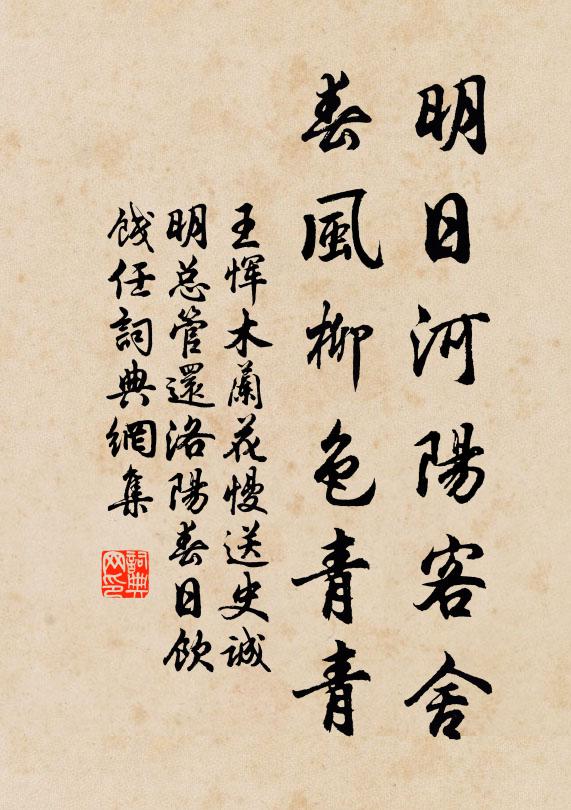 明日河陽客舍
春風柳色青青
王惲木蘭花慢送史誠
明总管還洛陽春日飲
餞任詞典網集
詞典
网印